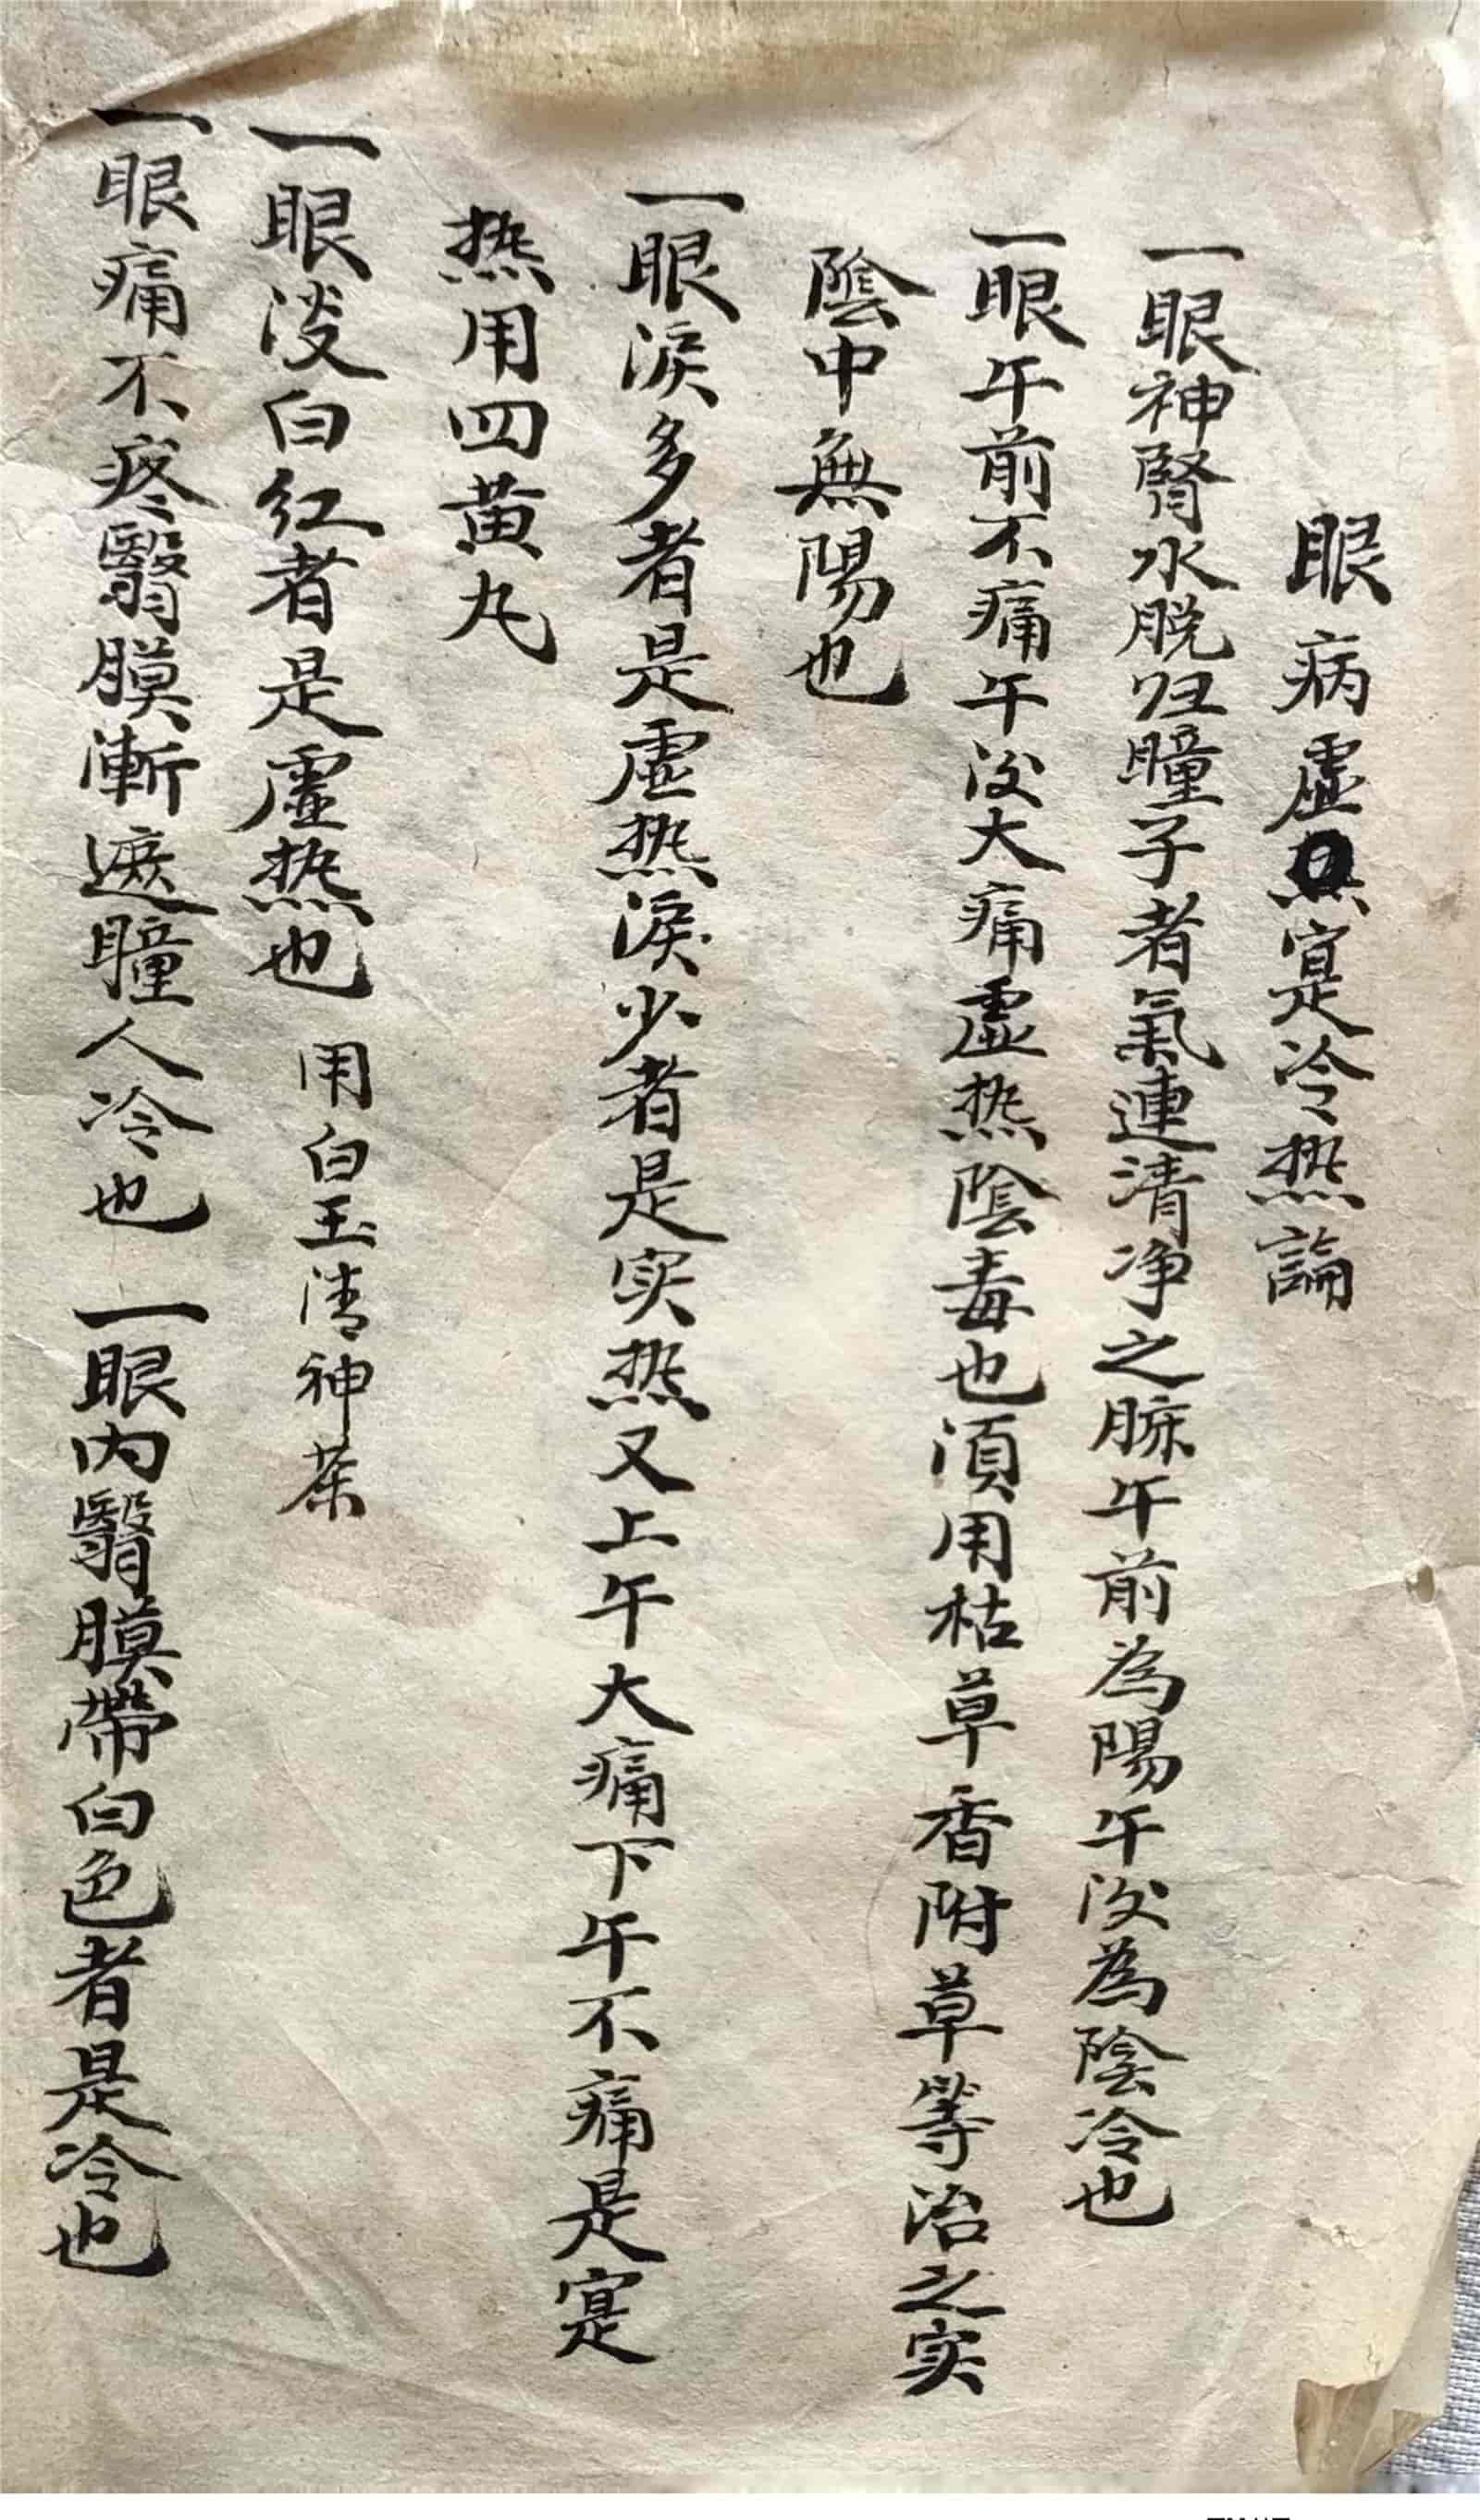 眼病虛寔冷热論
一眼神腎水脱归瞳子者氣連清净之脉午前為陽午後為陰冷也
一眼午前不痛午後大痛虛热陰毒也湏用枯草香附草等治之实
陰中無陽也
一眼淚多者是虛热淚少者是实热又上午大痛下午不痛是寔
热用四黄丸
一眼淡白红者是虛热也 用白玉清神茶
一眼痛不疼翳膜漸遮瞳人冷也 一眼内翳膜帶白色者是冷也